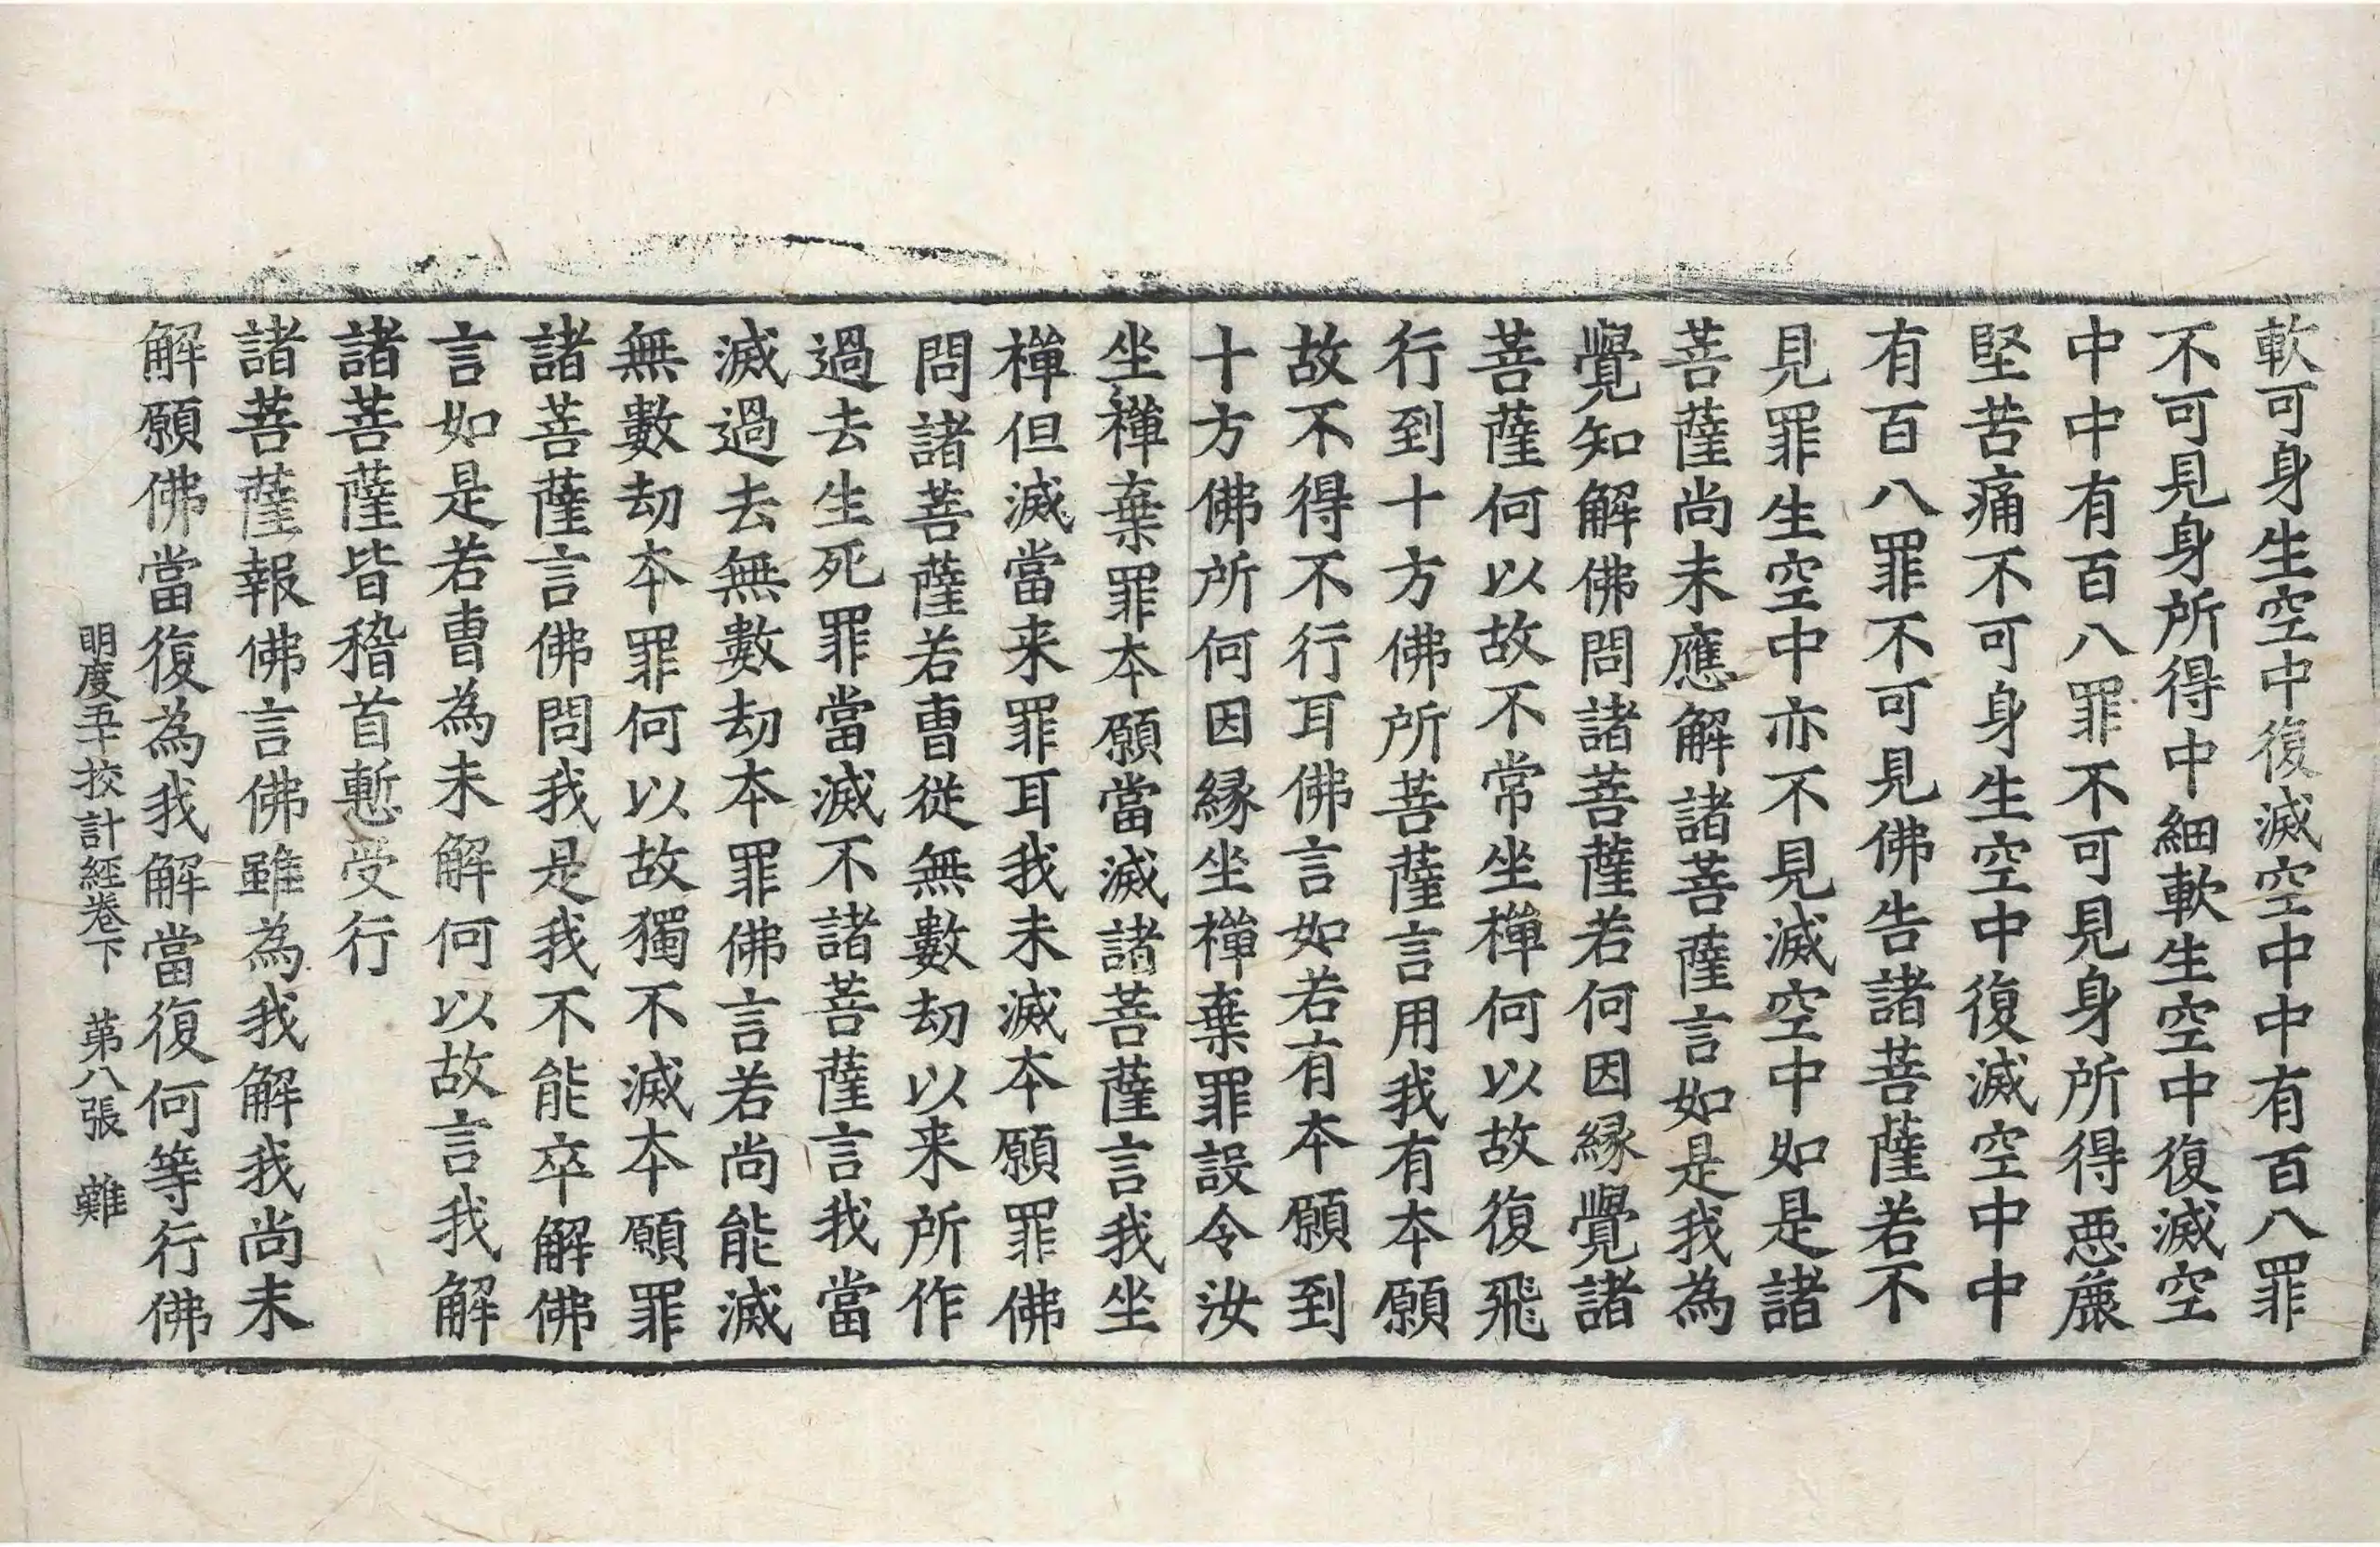 軟可身生空中復滅空中中有百八罪
不可見身所得中細軟生空中復滅空
中中有百八罪不可見身所得惡麁
堅苦痛不可身生空中復滅空中中
有百八罪不可見佛告諸菩薩若不
見罪生空中亦不見滅空中如是諸
菩薩尚未應解諸菩薩言如是我為
覺知解佛問諸菩薩若何因緣覺諸
菩薩何以故不常坐禪何以故復飛
行到十方佛所菩薩言用我有本願
故不得不行耳佛言如若有本願到
十方佛所何因緣坐禪棄罪設令汝
坐禪棄罪本願當滅諸菩薩言我坐
禪但滅當来罪耳我未滅本願罪佛
問諸菩薩若曺從無數劫以来所作
過去生死罪當滅不諸菩薩言我當
滅過去無數劫本罪佛言若尚能滅
無數劫本罪何以故獨不滅本願罪
諸菩薩言佛問我是我不能卒解佛
言如是若曺為未解何以故言我解
諸菩薩皆稽首慙受行
諸菩薩報佛言佛雖為我解我尚未
解願佛當復為我解當復何等行佛
明度五十挍計經卷下 第八張 難